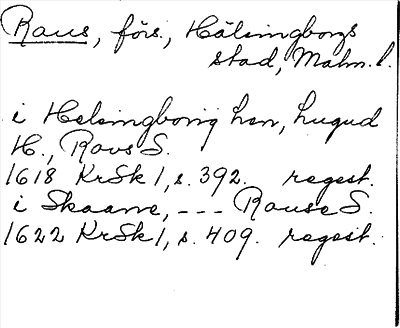 Raus, förs., Hälsingborgs
stad, Malm. l.
i Helsingborig hen, Lugud
H., Raus S.
1618 KrSk 1, s. 392. regest.
i Skaane, --- Rause S.
1622 KrSk 1, s. 409. regest.